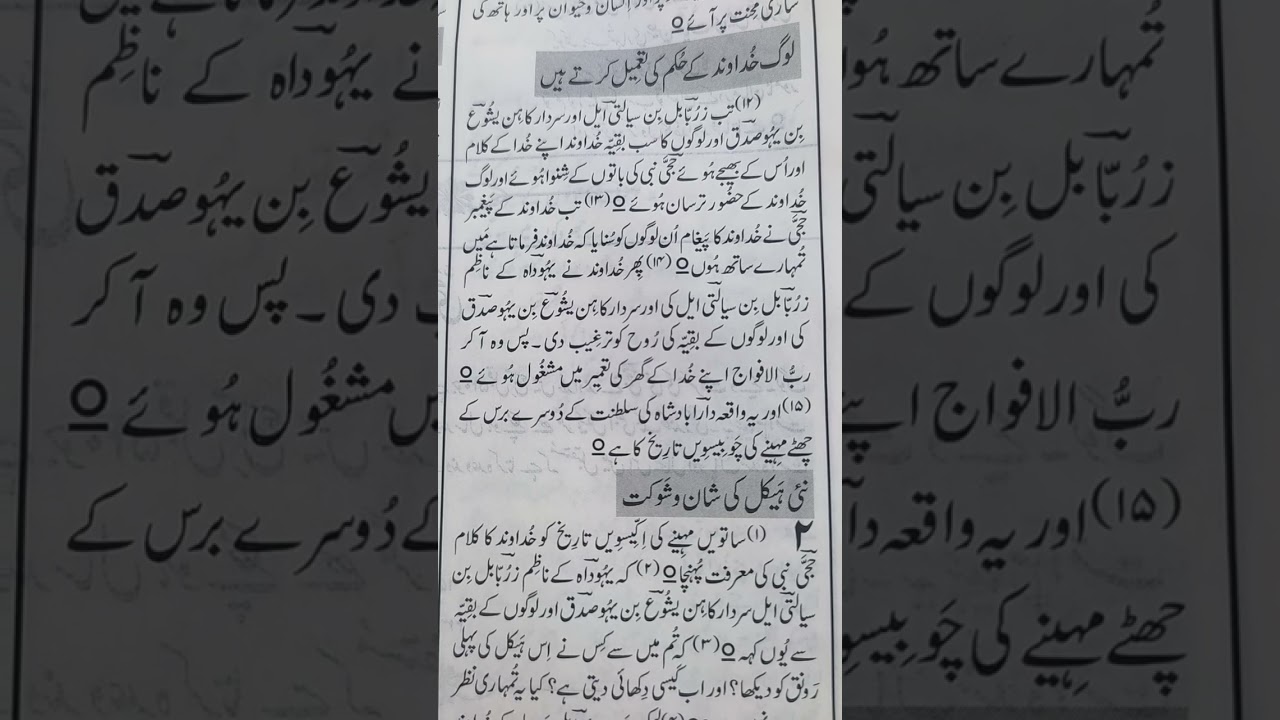 ساری محنت پر آئے o
لوگ خُداوند کے حُکم کی تعمیل کرتے ہیں
(۱۲) تب زرُبّابل بِن سیالتی ایل اور سردار کاہِن یشُوؔع
بِن یہُوصدؔق اور لوگوں کا سب بقیّہ خُداوند اپنے خُدا کے کلام
اور اُس کے بھیجے ہُوئے حجّؔی نبی کی باتوں کے شِنوا ہُوئے اور لوگ
خُداوند کے حضُور ترسان ہوئے o (۱۳) تب خُداوند کے پَیغمبر
حجّؔی نے خُداوند کا پَیغام اُن لوگوں کو سُنایا کہ خُداوند فرماتا ہے مَیں
تُمہارے ساتھ ہُوں o (۱۴) پِھر خُداوند نے یہُوداؔہ کے ناظِم
زرُبّابل بِن سیالتی ایل کی اور سردار کاہِن یشُوؔع بِن یہُوصدؔق
کی اور لوگوں کے بقیّہ کی رُوح کو ترغِیب دی۔ پس وہ آ کر
ربُّ الافواج اپنے خُدا کے گھر کی تعمیر میں مشغُول ہُوئے o
(۱۵) اور یہ واقعہ داراؔ بادشاہ کی سلطنت کے دُوسرے برس کے
چھٹے مہِینے کی چَوبِیسوِیں تارِیخ کا ہے o
نئی ہَیکل کی شان و شَوکت
۲ (۱) ساتویں مہِینے کی اِکِّیسوِیں تارِیخ کو خُداوند کا کلام
حجّؔی نبی کی معرفت پُہنچا o (۲) کہ یہُوداؔہ کے ناظِم زرُبّابل بِن
سیالتی ایل سردار کاہِن یشُوؔع بِن یہُوصدؔق اور لوگوں کے بقیّہ
سے یُوں کہہ o (۳) کہ تُم میں سے کِس نے اِس ہَیکل کی پہلی
رَونق کو دیکھا؟ اور اب کَیسی دِکھائی دیتی ہے؟ کیا یہ تُمہاری نظر